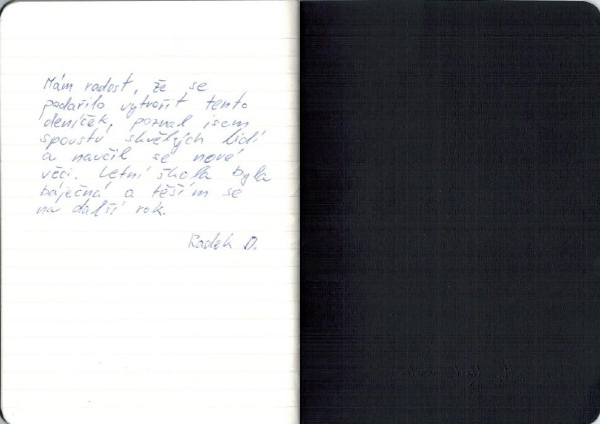 Mám radost, že se
podařilo vytvořit tento
deníček, poznal jsem
spoustu skvělých lidí
a naučil se nové
věci. Letní škola byla
báječná a těším se
na další rok.
Radek D.